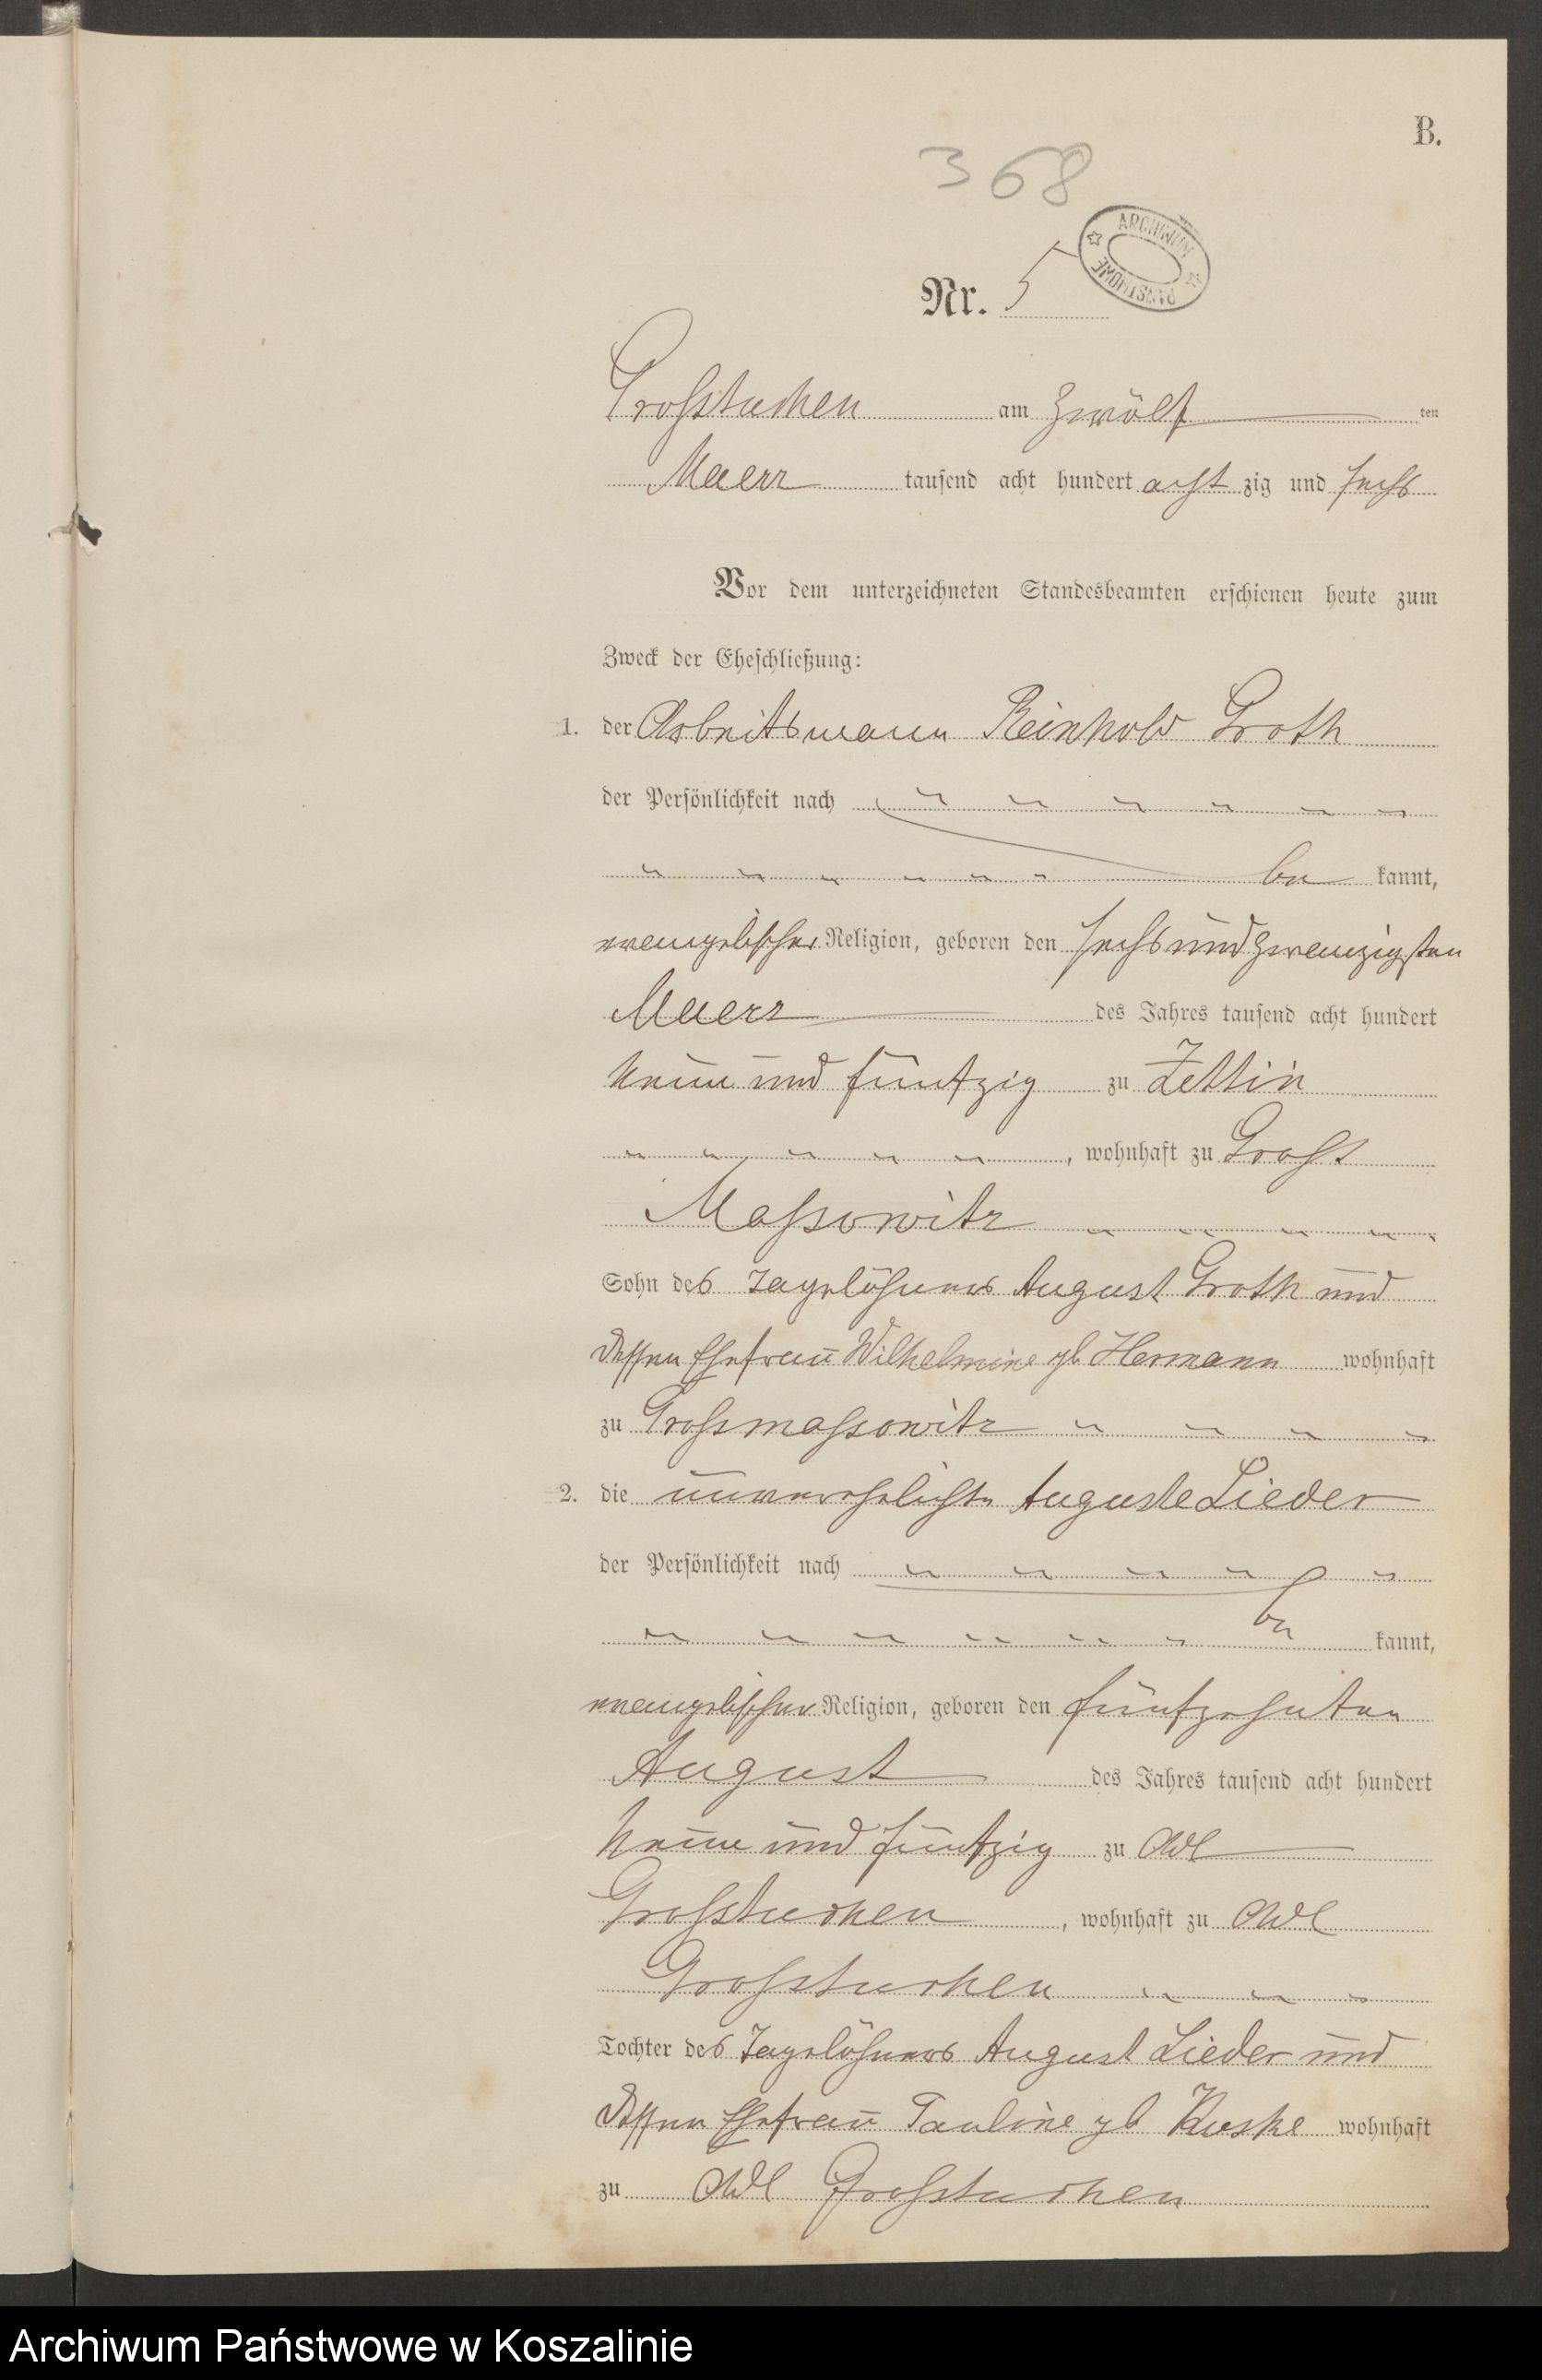 B.
368
ARCHIWUM PAŃSTWOWE
Nr. 5
Grosstuchen am zwölf ten
Maerz tausend acht hundert acht zig und sechs
Vor dem unterzeichneten Standesbeamten erschienen heute zum
Zweck der Eheschließung:
1. der Arbeitsmann Reinhold Groth
der Persönlichkeit nach
be kannt,
evangelischer Religion, geboren den sechs und zwanzigsten
Maerz des Jahres tausend acht hundert
neun und fünfzig zu Zettin
, wohnhaft zu Gross
Massowitz
Sohn des Tagelöhners August Groth und
dessen Ehefrau Wilhelmine gb Hermann wohnhaft
zu Grossmassowitz
2. die unverehelichte Auguste Lieder
der Persönlichkeit nach
be kannt,
evangelischer Religion, geboren den fünfzehnten
August des Jahres tausend acht hundert
neun und fünfzig zu Adl
Grosstuchen , wohnhaft zu Adl
Grosstuchen
Tochter des Tagelöhners August Lieder und
dessen Ehefrau Pauline gb Kuske wohnhaft
zu Adl Grosstuchen
Archiwum Państwowe w Koszalinie